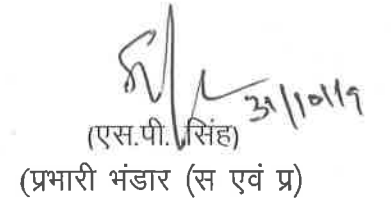 31/10/19
(एस.पी. सिंह)
(प्रभारी भंडार (स एवं प्र)